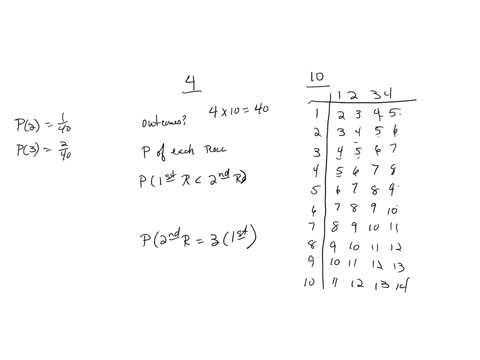 4
outcomes? 4 x 10 = 40
P(2) = 1/40
P(3) = 2/40
P of each Roll
P(1st R < 2nd R)
P(2nd R = 3(1st)
10
1 2 3 4
1 2 3 4 5
2 3 4 5 6
3 4 5 6 7
4 5 6 7 8
5 6 7 8 9
6 7 8 9 10
7 8 9 10 11
8 9 10 11 12
9 10 11 12 13
10 11 12 13 14